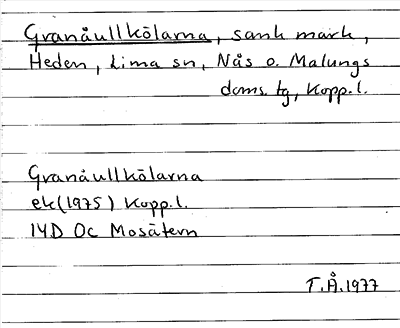 Granåullkölarna, sank mark,
Heden, Lima sn, Nås o. Malungs
doms. tg, Kopp. l.
Granåullkölarna
ek (1975) Kopp. l.
14D Oc Mosätern
T.Å. 1977